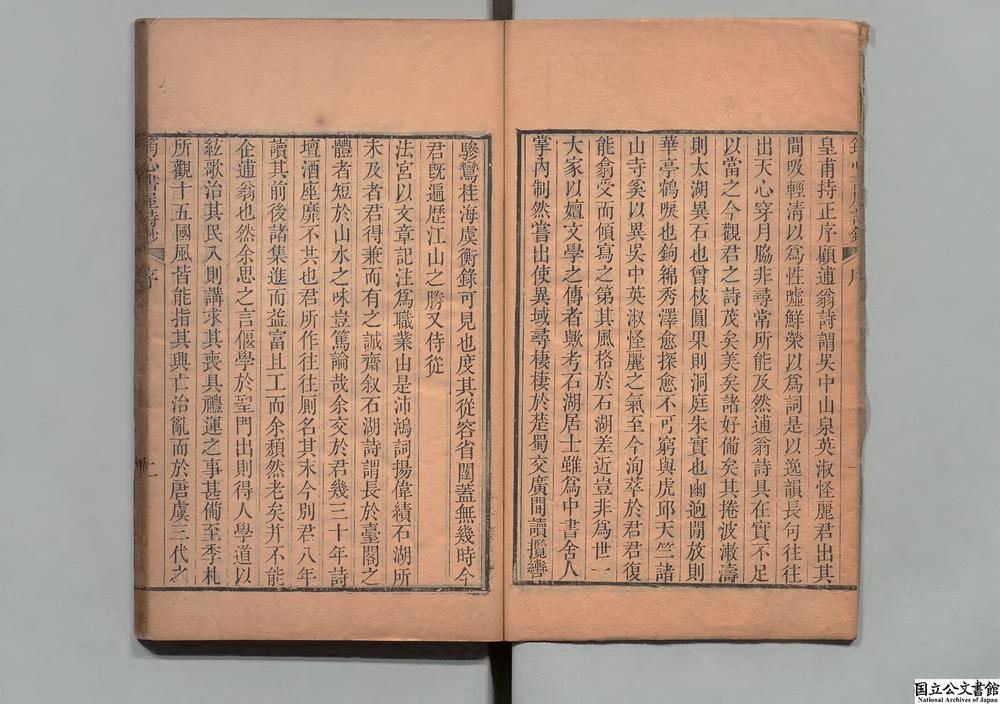 皇甫持正序顧逋翁詩謂吳中山泉英淑怪麗君出其
間吸輕清以爲性噓鮮榮以爲詞是以逸韻長句往往
出天心穿月脇非尋常所能及然逋翁詩具在實不足
以當之今觀君之詩茂矣美矣諸好備矣其捲波潄濤
則太湖異石也曾枝圓果則洞庭朱實也幽逈閒放則
華亭鶴唳也鉤綿秀澤愈探愈不可窮與虎邱天竺諸
山寺奚以異吳中英淑怪麗之氣至今洵萃於君君復
能翁受而傾寫之第其風格於石湖差近豈非爲世一
大家以嬗文學之傳者歟考石湖居士雖爲中書舍人
掌內制然嘗出使異域尋棲棲於楚蜀交廣間讀攬轡
驂鸞桂海虞衡錄可見也度其從容省闥蓋無幾時今
君旣遍歷江山之勝又侍從
法宮以文章記注爲職業由是沛鴻詞揚偉績石湖所
未及者君得兼而有之誠齋叙石湖詩謂長於臺閣之
體者短於山水之味豈篤論哉余交於君幾三十年詩
壇酒座靡不其也君所作往往厠名其末今別君八年
讀其前後諸集進而益富且工而余頹然老矣幷不能
企逋翁也然余思之言偃學於聖門出則得人學道以
絃歌治其民入則講求其喪具禮運之事甚備至季札
所觀十五國風皆能指其興亡治亂而於唐虞三代之
心書屋詩鈔
序
二
國立公文書館
National Archives of Japan